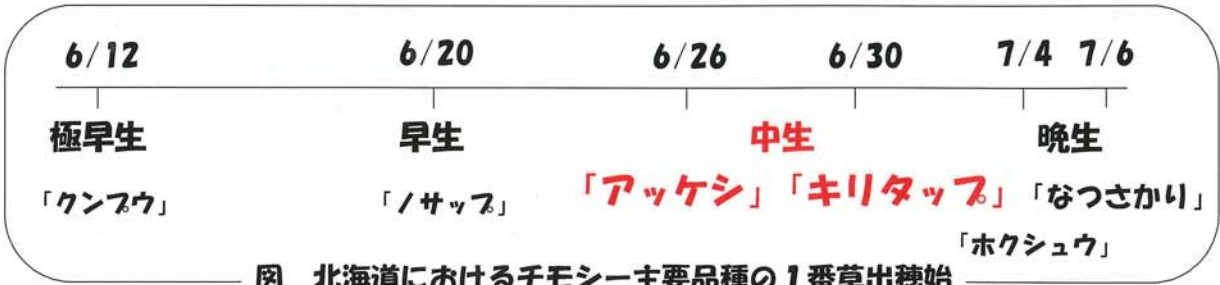 6/12 6/20 6/26 6/30 7/4 7/6
極早生 早生 中生 晩生
「クンプウ」 「ノサップ」 「アッケシ」「キリタップ」 「なつさかり」
「ホクシュウ」
図 北海道におけるチモシー主要品種の1番草出穂始